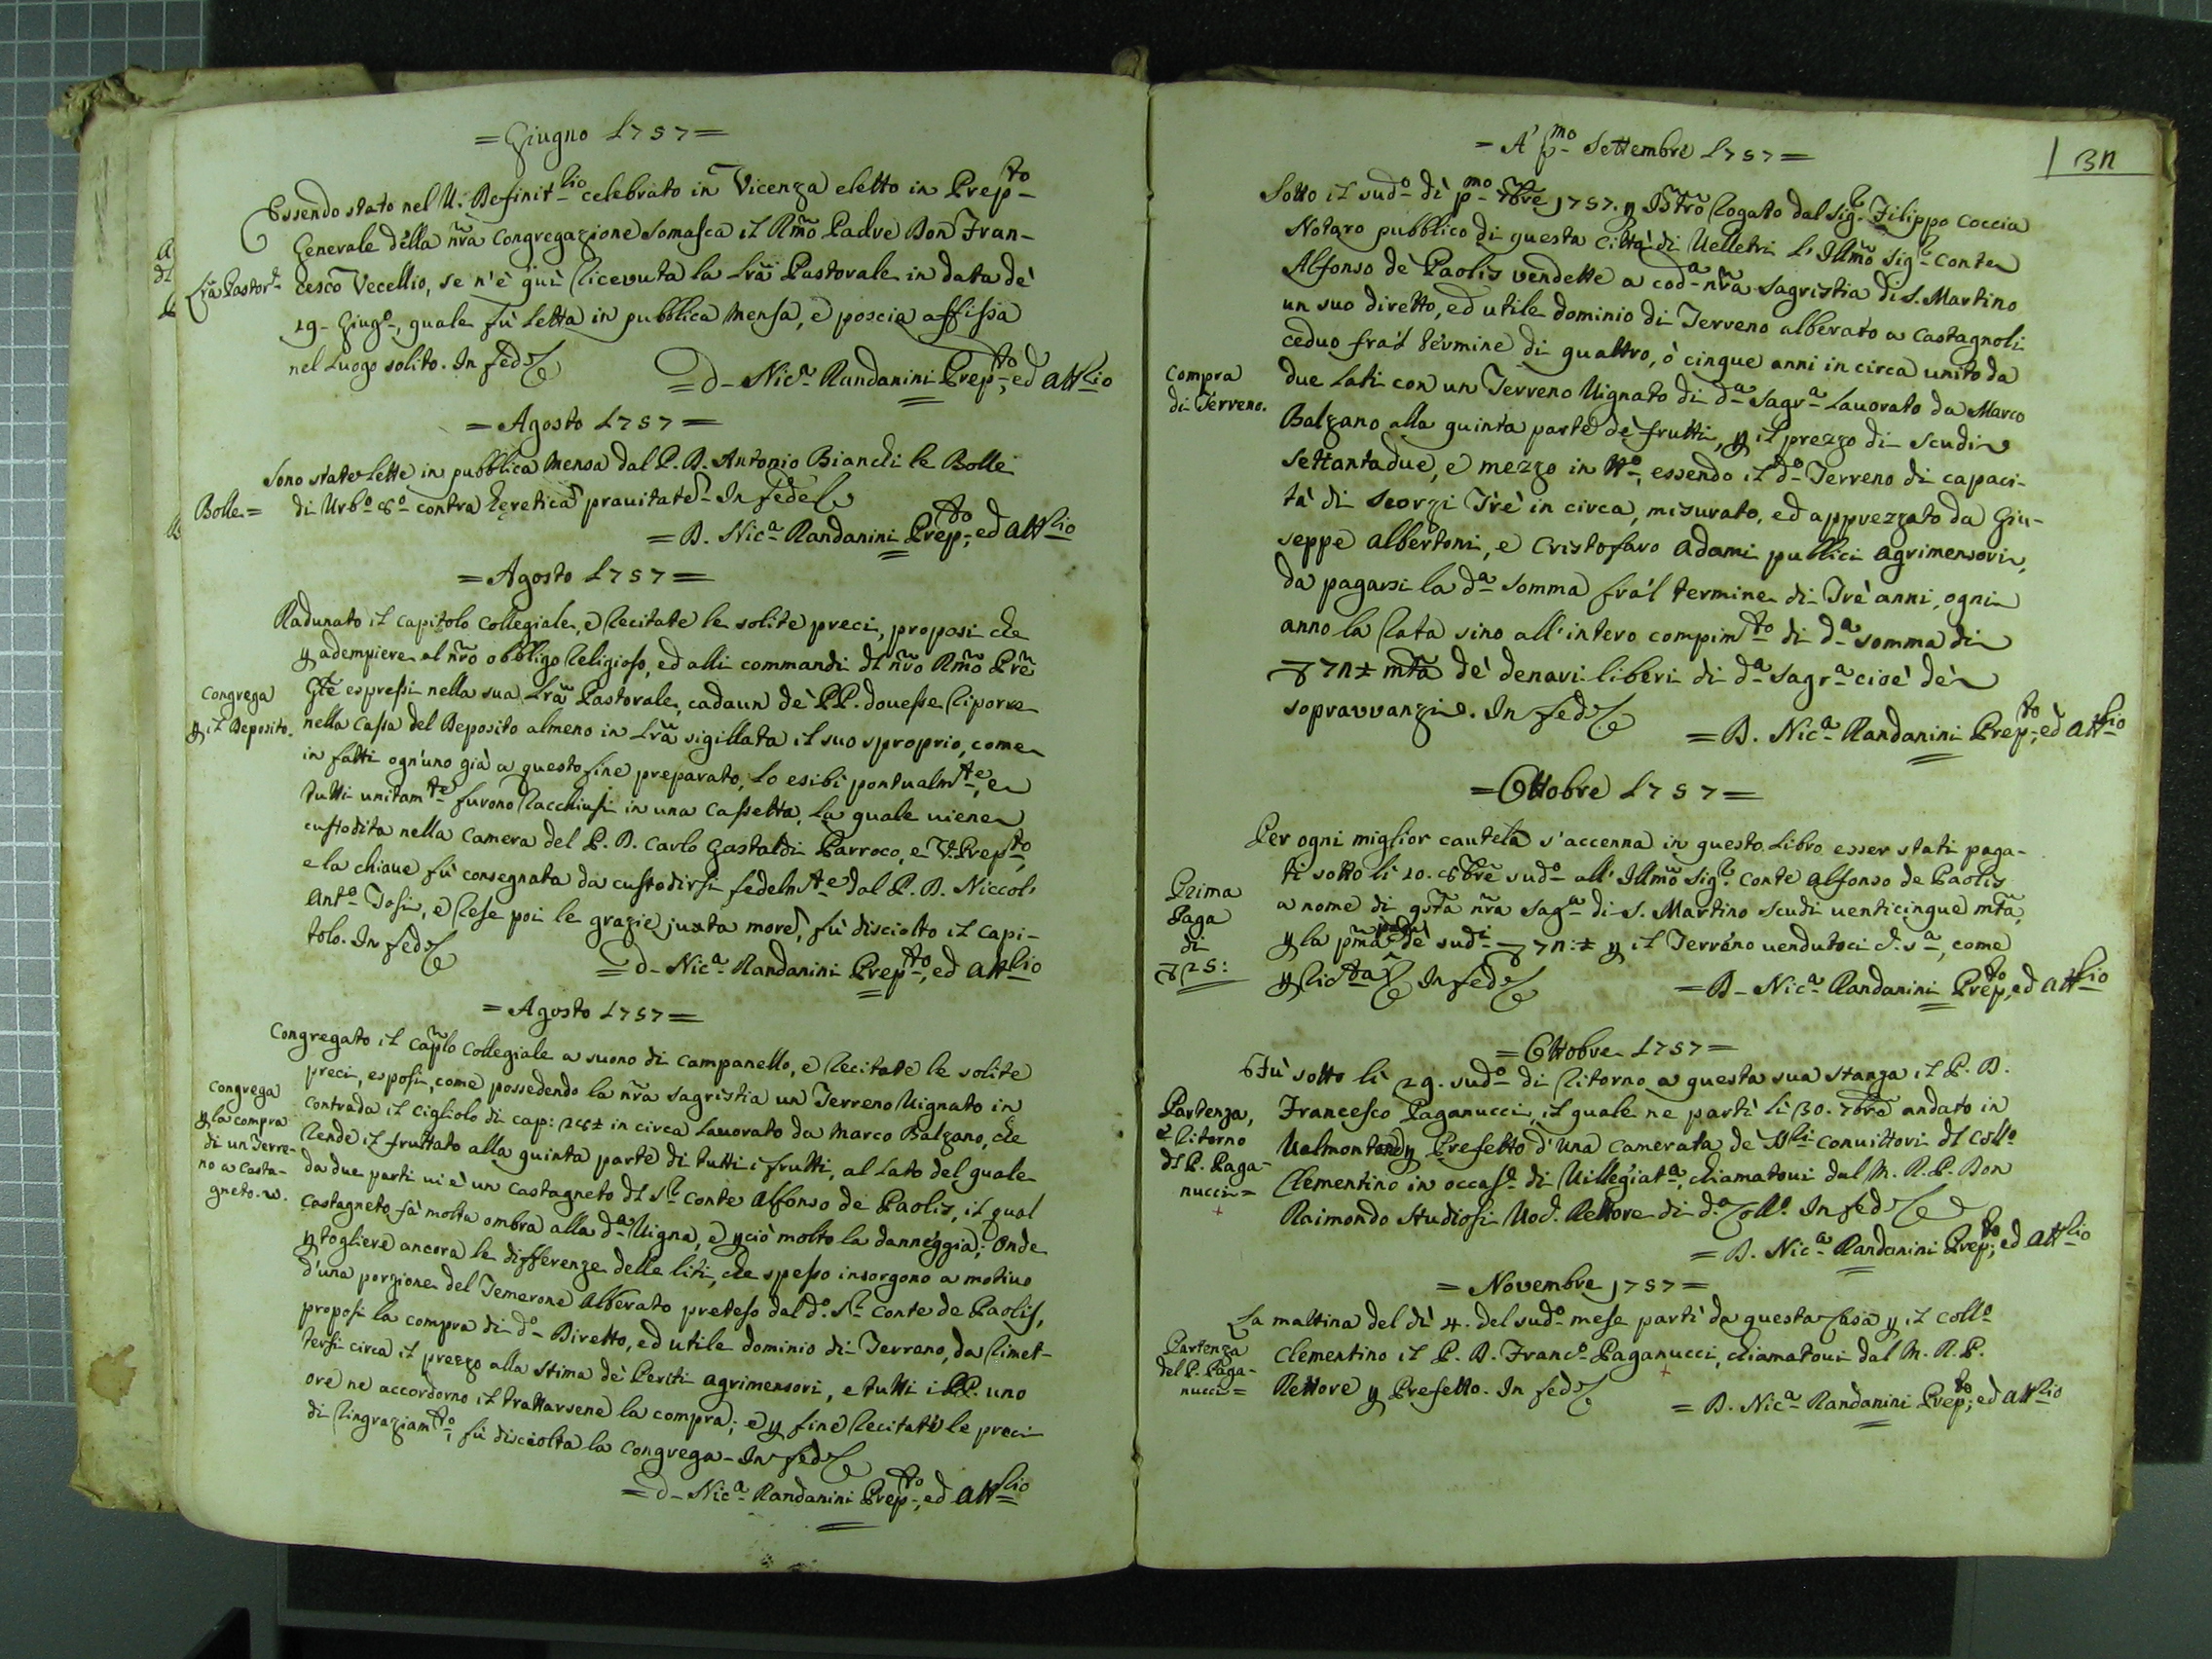 =Giugno 1757=
Essendo stato nel V. Definit.lio celebrato in Vicenza eletto in Prep.to
Generale della nrã Congregazione Somasca il Rmõ Padre Don Fran-
Lrã Pastor.
cesco Vecellio, se n'è quì ricevuta la Lrã Pastorale in data dè
29. Giug.o, quale fù letta in pubblica mensa, e poscia affissa
nel luogo solito. In fede
= D. Nic.a Randanini Prep.to, ed Att.rio
= Agosto 1757 =
Sono state lette in pubblica mensa dal P. D. Antonio Bianchi le Bolle
Bolle =
di Urb.o 8.o contra hereticã pravitatẽ. In fede
= D. Nic.a Randanini Prep.to, ed Att.rio
= Agosto 1757 =
Radunato il Capitolo Collegiale, e recitate le solite preci, proposi che
p adempiere al nrõ obbligo Religioso, ed alli commandi dl nrõ Rmõ Prẽ
Glẽ espressi nella sua Lrã Pastorale, cadaun dè PP. dovesse riporre
Congrega
p il Deposito.
nella Cassa del Deposito almeno in Lrã sigillata il suo sproprio, come
in fatti ogn'uno già a questo fine preparato, lo esibì pontualm.te, e
tutti unitam.te furono racchiusi in una cassetta, la quale viene
custodita nella Camera del P. D. Carlo Gastaldi Parroco, e V. Prep.to,
e la chiave fù consegnata da custodirsi fedelm.te dal P. D. Niccol'
Ant.o Tosi, e rese poi le grazie juxta morẽ, fù disciolto il Capi-
tolo. In fede
= D. Nic.a Randanini Prep.to, ed Att.rio
= Agosto 1757 =
Congregato il Caplõ Collegiale a suono di campanello, e recitate le solite
preci, esposi, come possedendo la nrã Sagristia un Terreno Vignato in
Congrega
p la compra
di un Terre-
no a Casta-
gneto.
contrada il Cigliolo di cap: in circa lavorato da Marco Balzano, che
rende il fruttato alla quinta parte di tutti i frutti, al lato del quale
da due parti vi è un Castagneto dl S.r Conte Alfonso de Paolis, il qual
Castagneto fà molta ombra alla d.a Vigna, e p ciò molto la danneggia; Onde
p togliere ancora le differenze delle liti, che spesso insorgono a motivo
d'una porzione del Temerone Alberato preteso dal d.o S.r Conte de Paolis,
proposi la compra di d.o Diretto, ed utile dominio di Terreno, da rimet-
tersi circa il prezzo alla stima dè Periti Agrimensori, e tutti i PP. uno
ore ne accordorno il trattarsene la compra; e p fine recitate le preci
di ringraziam.to, fù disciolta la Congrega. In fede
= D. Nic.a Randanini Prep.to, ed Att.rio
= A' p.mo Settembre 1757 =
Sotto il sud.o dì p.mo 7brẽ 1757. p Istrõ rogato dal Sig.r Filippo Coccia
Notaro pubblico di questa Città di Velletri l'Illmõ Sig.r Conte
Alfonso dè Paolis vendette a cod.a nrã Sagristia di S. Martino
un suo diretto, ed utile dominio di Terreno alberato a Castagnoli
ceduo frà'l termine di quattro, ò cinque anni in circa unito da
Compra
di Terreno.
due lati con un Terreno Vignato di d.a Sagr.a lavorato da Marco
Balzano alla quinta parte dè frutti, p il prezzo di scudi
settantadue, e mezzo in tt.o, essendo il d.o Terreno di capaci-
tà di Scorzi Trè in circa, misurato, ed apprezzato da Giu-
seppe Albertoni, e Cristofaro Adami pubblici Agrimensori,
da pagarsi la d.a somma frà'l termine di Trè anni, ogni
anno la rata sino all'intero compim.to di d.a somma di
72½ mtã dè denari liberi di d.a Sagr.a cioè dè
sopravvanzi. In fede
= D. Nic.a Randanini Prep.to, ed Att.rio
= Ottobre 1757 =
Per ogni miglior cautela s'accenna in questo Libro esser stati paga-
ti sotto li 20. 8brẽ sud.o all'Illmõ Sig.r Conte Alfonso de Paolis
Prima
Paga
di
25:
a nome di qstã nrã Sag.a di S. Martino scudi venticinque mtã,
p la pmã paga dè sud.i 72:½ p il Terreno vendutoci d. s.a, come
p ric.ta In fede
= D. Nic.a Randanini Prep.to, ed Att.rio
= Ottobre 1757 =
Fù sotto li 29. sud.o di ritorno a questa sua stanza il P. D.
Partenza,
e ritorno
dl P. Paga-
nucci =
Francesco Paganucci, il quale ne partì li 30. 7brẽ andato in
Valmontone p Prefetto d'una Camerata dè SS.ri Convittori dl Coll.o
Clementino in occas.e di Villegiat.a, chiamatovi dal M. R. P. Don
Raimondo Studiosi Rettore di d.o Coll.o. In fede
= D. Nic.a Randanini Prep.to, ed Att.rio
= Novembre 1757 =
La mattina del dì 4. del sud.o mese partì da questa Casa p il Coll.o
Partenza
del P. Paga-
nucci =
Clementino il P. D. Franc.o Paganucci, chiamatovi dal M. R. P.
Rettore p Prefetto. In fede
= D. Nic.a Randanini Prep.to, ed Att.rio